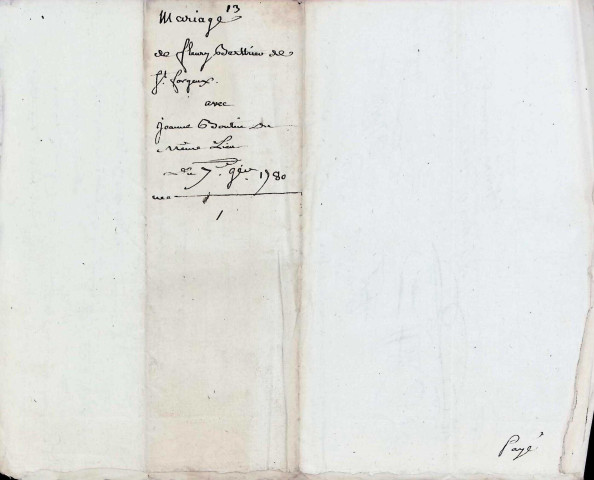 13
Mariage
de fleury Berthieu de
St. forgeux.
avec
jeanne Boulin du
même Lieu
du 7e. gev. 1780
1
Payé